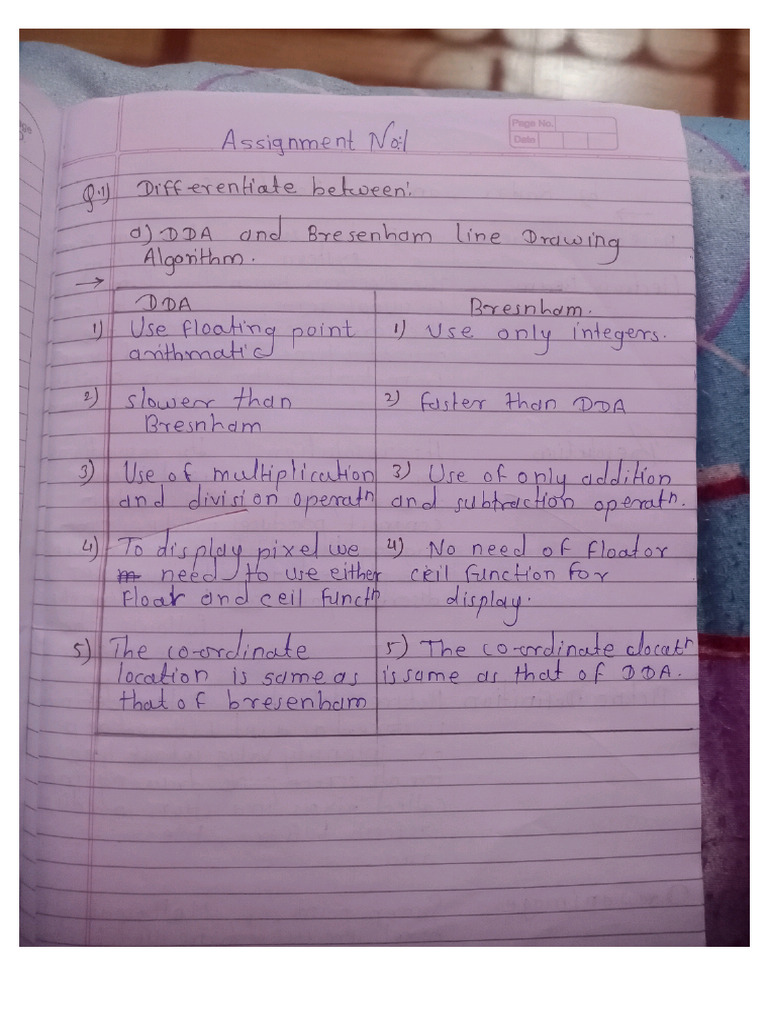 Page No.
Date
Assignment No:1
Q.1) Differentiate between:
a) DDA and Bresenham line Drawing
Algorithm.
→
DDA
1) Use floating point
arithmatic
2) slower than
Bresnham
3) Use of multiplication
and division operatn
4) To display pixel we
need to use either
floar and ceil functn
5) The co-ordinate
location is same as
that of bresenham
Bresnham.
1) Use only integers.
2) faster than DDA
3) Use of only addition
and subtraction operatn.
4) No need of floator
ceil function for
display.
5) The co-ordinate clocatn
is same as that of DDA.